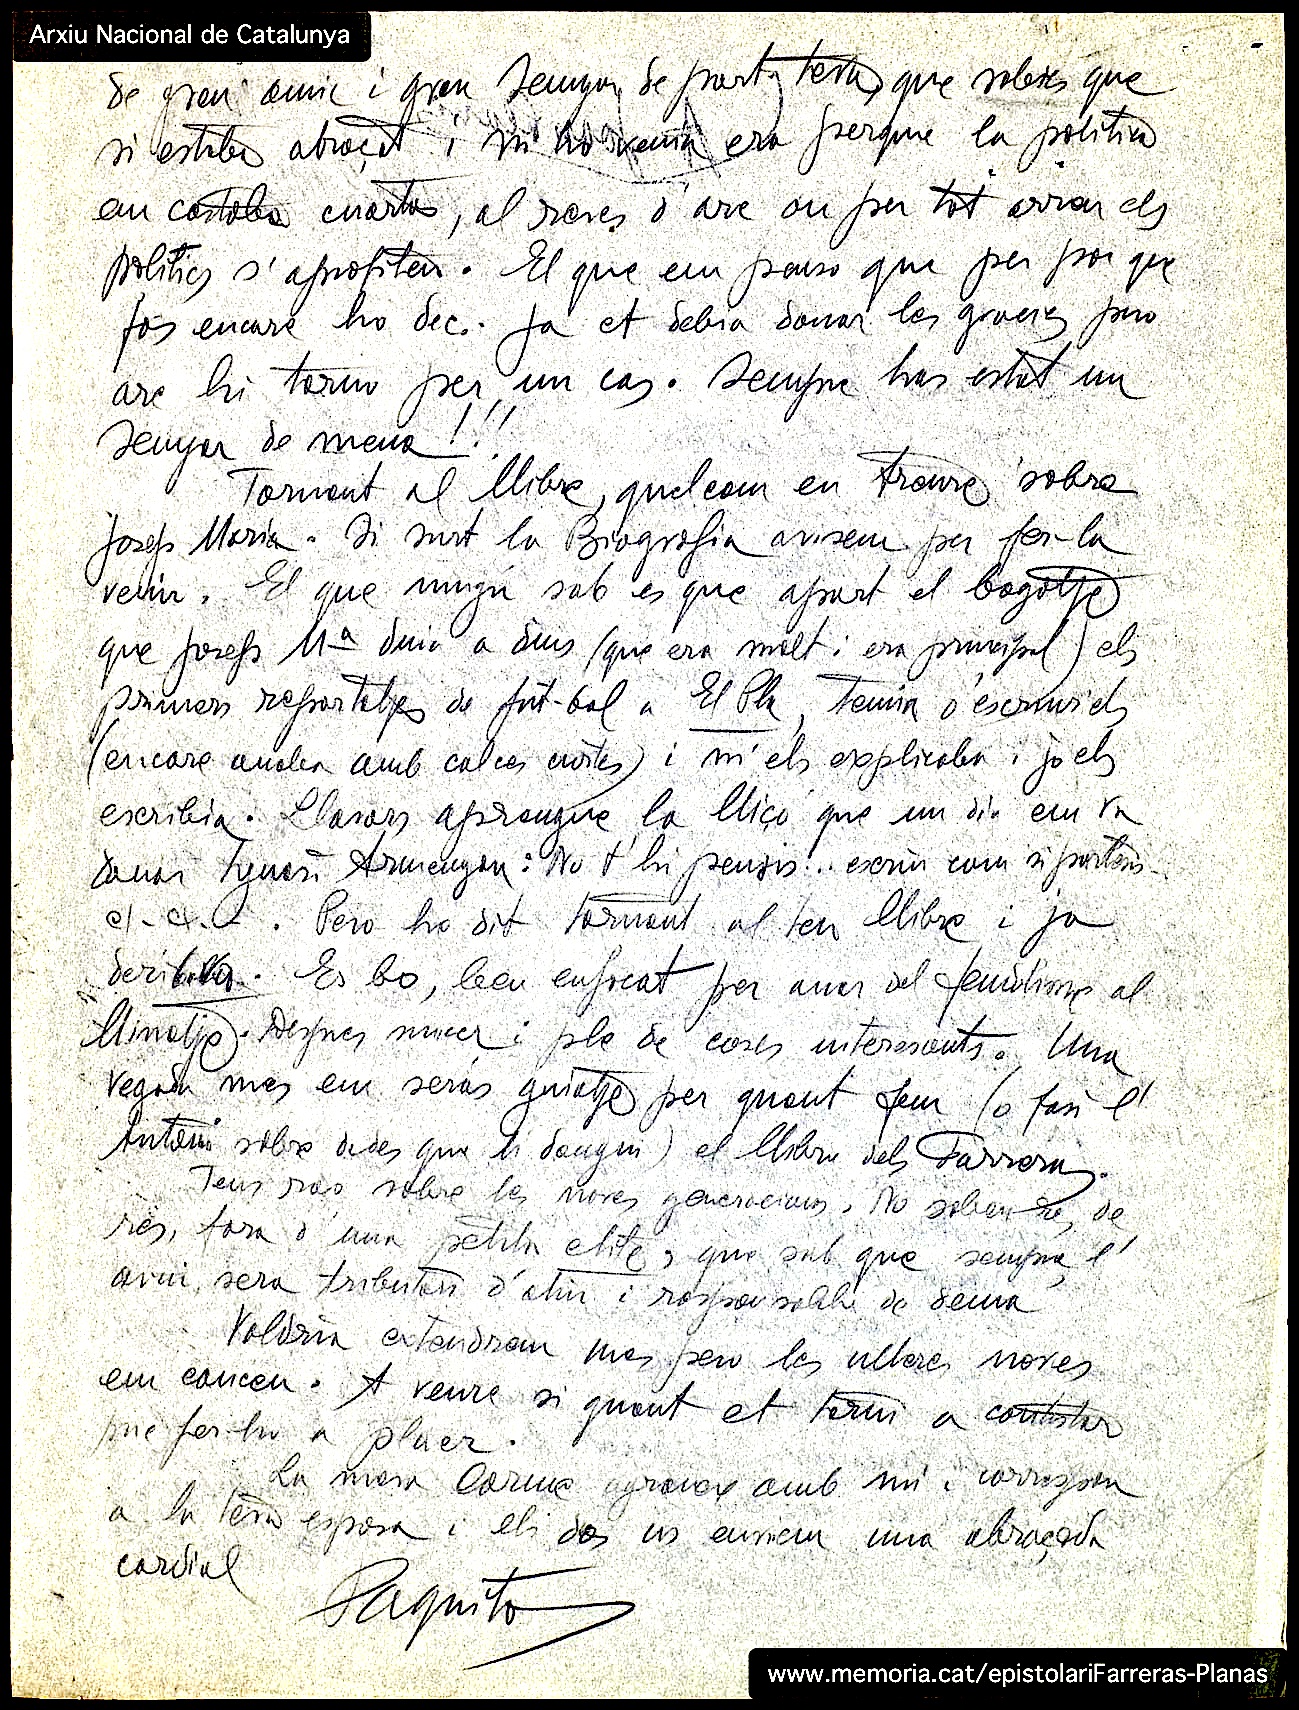 Arxiu Nacional de Catalunya
de gran amic i gran Senyor de part teva, que sabies que
si estaba abraçat i m'ho venia era perque la politica
em costaba cuartos, al reves d'are on per tot arreu els
politics s'aprofiten. El que em penso que per poc que
fos encare ho dec. Ja et debia donar les gracies pero
are hi torno per un cas. Sempre has estat un
Senyor de mena!!!
Tornant al llibre, quelcom en treure sobre
Josep Maria. Si surt la Biografia avisem per fer-la
venir. El que ningú sab es que apart el bagatje
que Josep Mª duia a dins (que era molt i era principal) els
primers reportatjes de fut-bol a El Pla, tenia d'escriurels
(encare anaba amb calces curtes) i m'els explicaba i jo els
escribia. Llavors aprengue la lliço que un dia em va
donar Ignasi Armengou: No t'hi pensis... escriu com si parlesis
et. et. . Pero ho dit tornant al teu llibre i ja
deribaba. Es bo, ben enfocat per anar del feudlisme al
llinatje. Despres sucer i ple de coses interesants. Una
vegada mes em seras guiatje per quant fem (o fasi l'
Antoni sobre dades que li dongui) el llibre dels Farreras.
Tens rao sobre les noves generacions. No saben res, de
res, fora d'una petita elite, que sab que sempre, l'
avui, sera tributari d'ahir i responsable de dema
Voldria extendrem mes pero les ulleres noves
em cansen. A veure si quant et torni a contestar
puc fer-ho a plaer.
La meva Carme agraeix amb mi i correspon
a la teva esposa i els dos us enviem una abraçada
cordial
Paquito
www.memoria.cat/epistolariFarreras-Planas